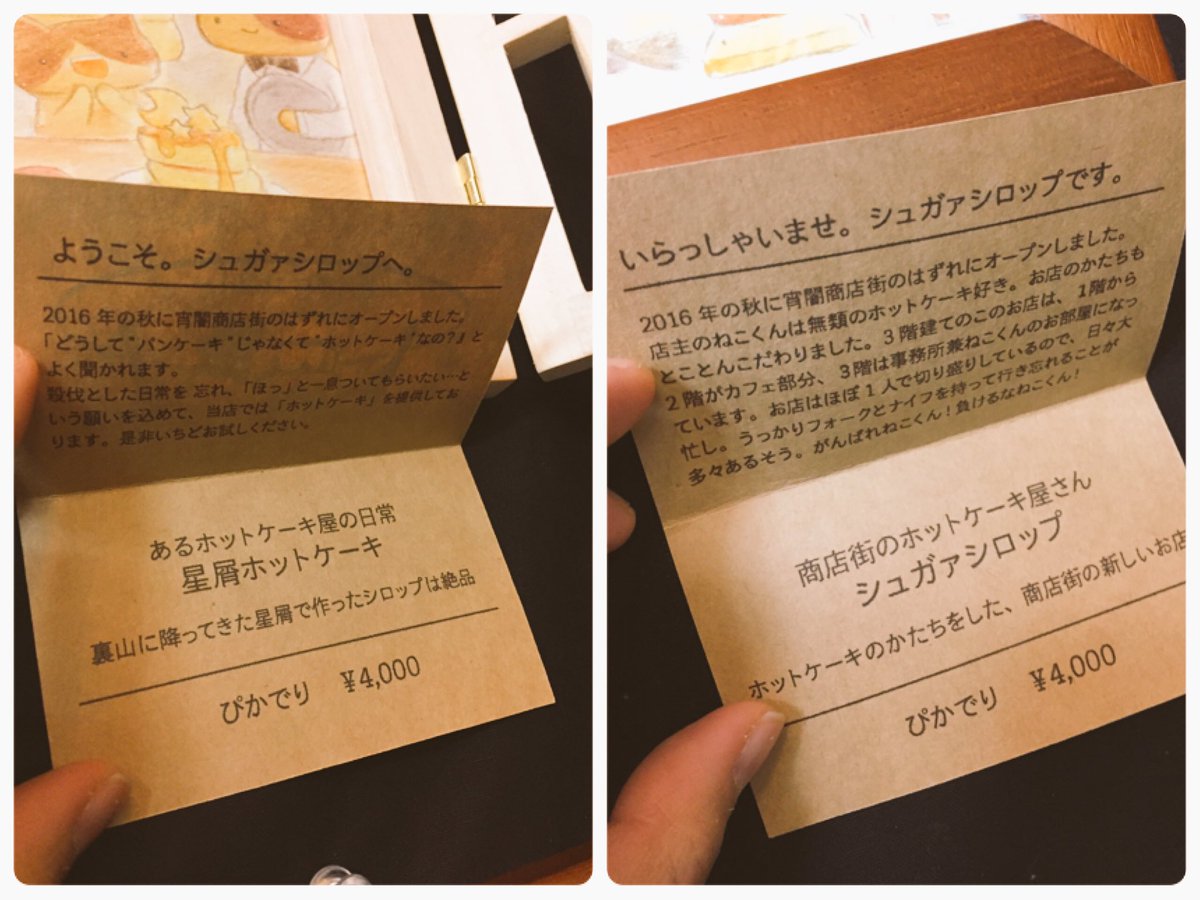 ようこそ。シュガァシロップへ。
2016 年の秋に宵闇商店街のはずれにオープンしました。
「どうして“パンケーキ”じゃなくて“ホットケーキ”なの?」と
よく聞かれます。
殺伐とした日常を 忘れ、「ほっ」と一息ついてもらいたい…と
いう願いを込めて、当店では「ホットケーキ」を提供してお
ります。是非いちどお試しください。
あるホットケーキ屋の日常
星屑ホットケーキ
裏山に降ってきた星屑で作ったシロップは絶品
ぴかでり ¥4,000
いらっしゃいませ。シュガァシロップです。
2016 年の秋に宵闇商店街のはずれにオープンしました。
店主のねこくんは無類のホットケーキ好き。お店のかたちも
とことんこだわりました。3 階建てのこのお店は、1階から
2 階がカフェ部分、3階は事務所兼ねこくんのお部屋になっ
ています。お店はほぼ 1 人で切り盛りしているので、日々大
忙し。うっかりフォークとナイフを持って行き忘れることが
多々あるそう。がんばれねこくん!負けるなねこくん!
商店街のホットケーキ屋さん
シュガァシロップ
ホットケーキのかたちをした、商店街の新しいお店
ぴかでり ¥4,000